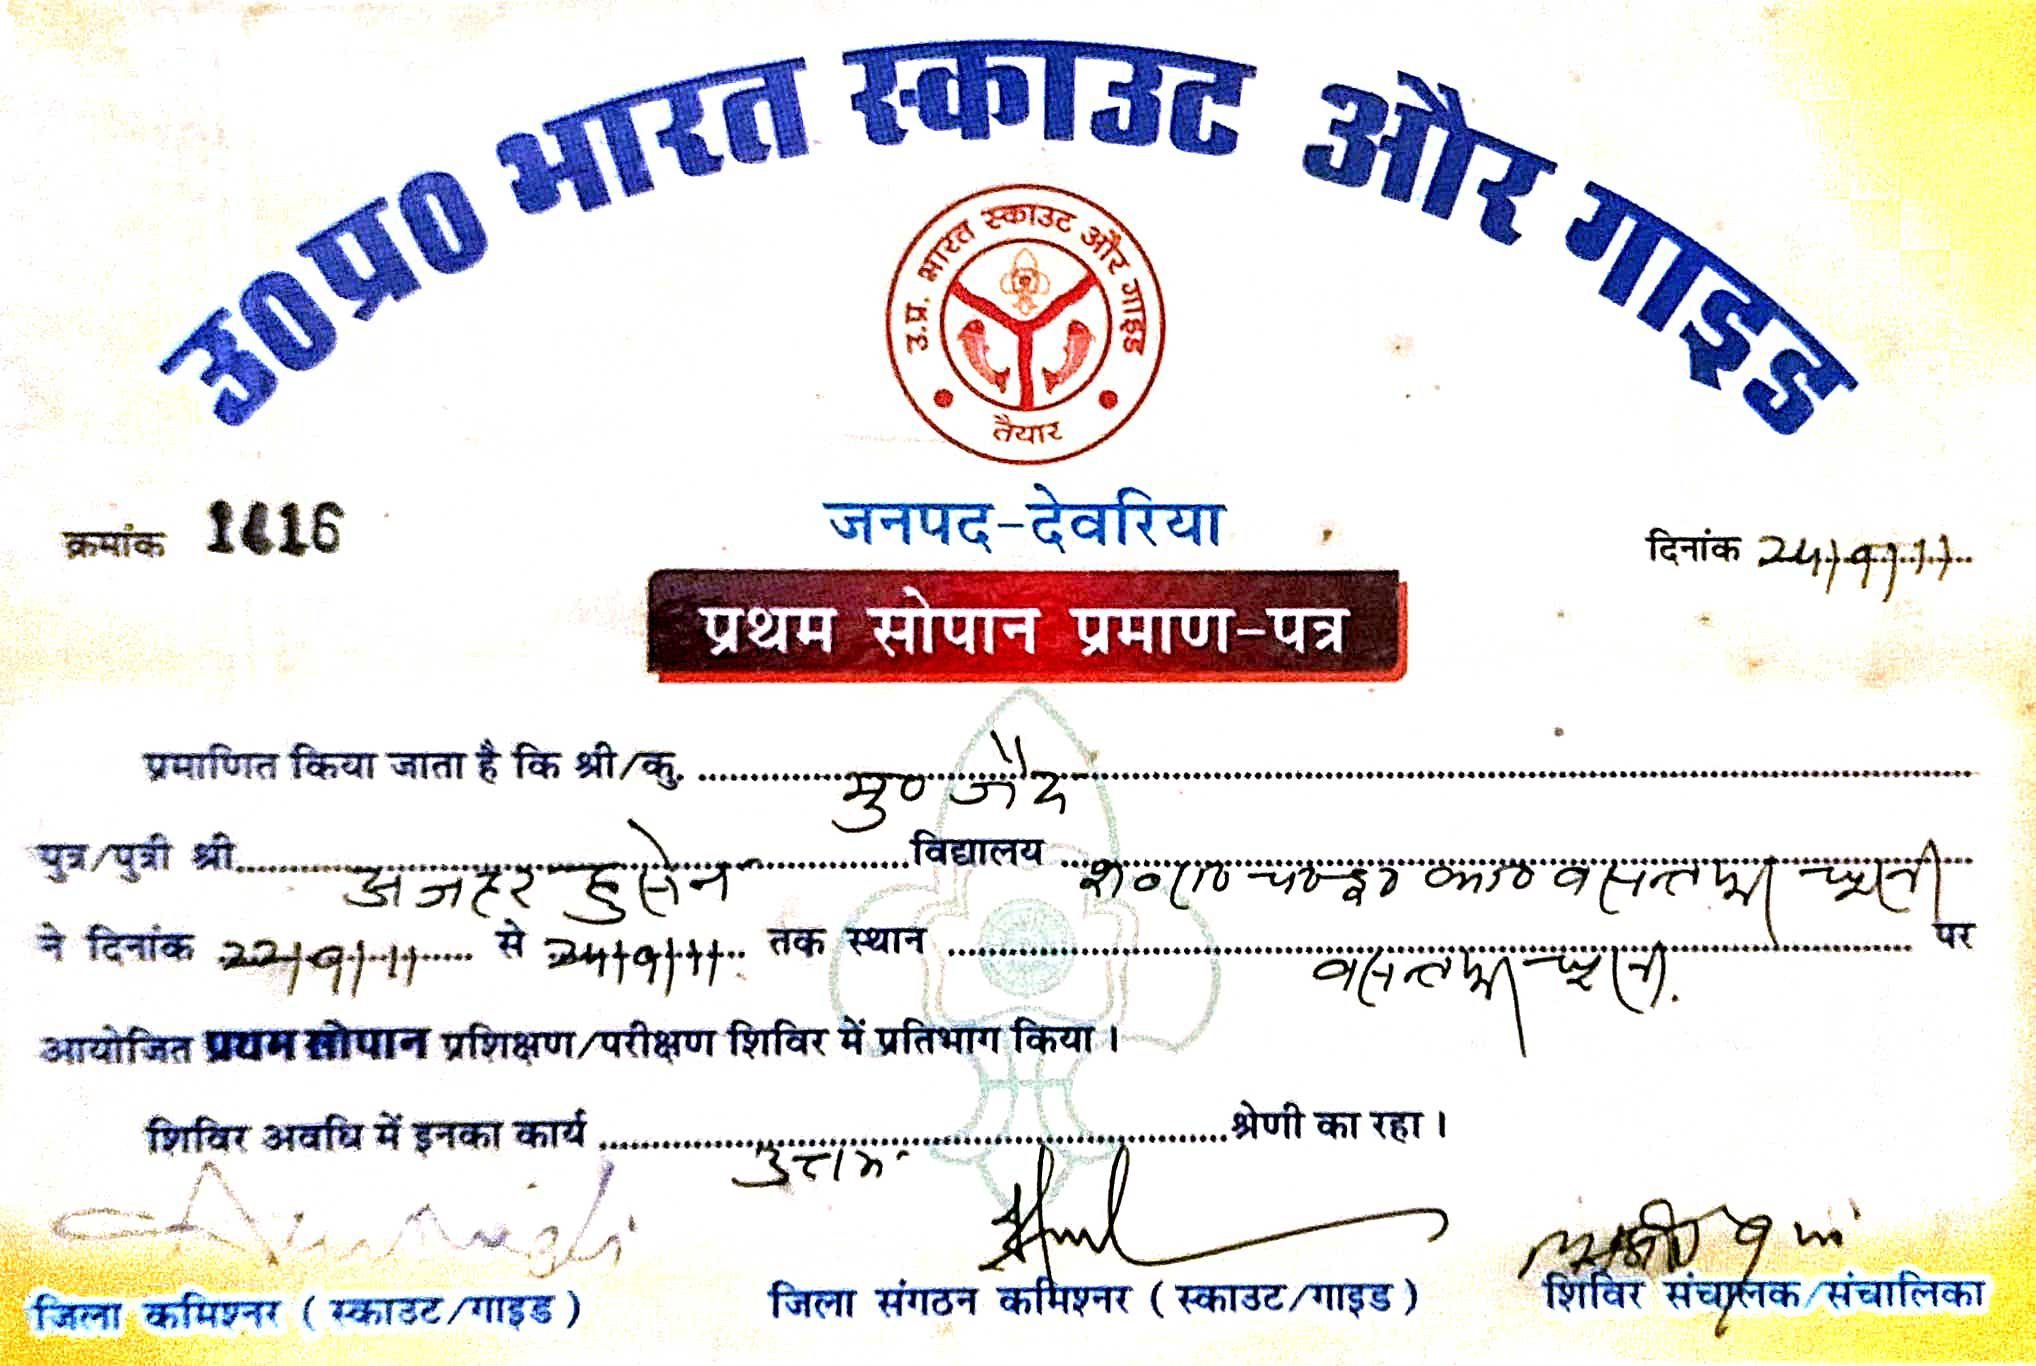 उ०प्र० भारत स्काउट और गाइड
उ.प्र. भारत स्काउट और गाइड
तैयार
जनपद-देवरिया
क्रमांक 1416 दिनांक 24/9/11
प्रथम सोपान प्रमाण-पत्र
प्रमाणित किया जाता है कि श्री/कु. मु० जैद
पुत्र/पुत्री श्री अजहर हुसेन विद्यालय वसन्तपुर धूसी
ने दिनांक 22/9/11 से 24/9/11 तक स्थान वसन्तपुर धूसी पर
आयोजित प्रथम सोपान प्रशिक्षण/परीक्षण शिविर में प्रतिभाग किया।
शिविर अवधि में इनका कार्य उत्तम श्रेणी का रहा।
जिला कमिश्नर (स्काउट/गाइड) जिला संगठन कमिश्नर (स्काउट/गाइड) शिविर संचालक/संचालिका